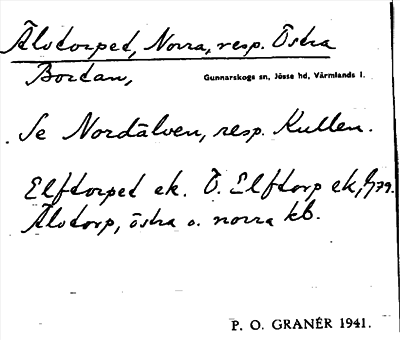 Älvtorpet, Norra, resp. Östra
Bortan,
Gunnarskogs sn, Jösse hd, Värmlands l.
Se Nordälven, resp. Kullen.
Elftorpet ek. Ö. Elftorp ek, 79.
Älvtorp, östra o. norra kb.
P. O. GRANÉR 1941.